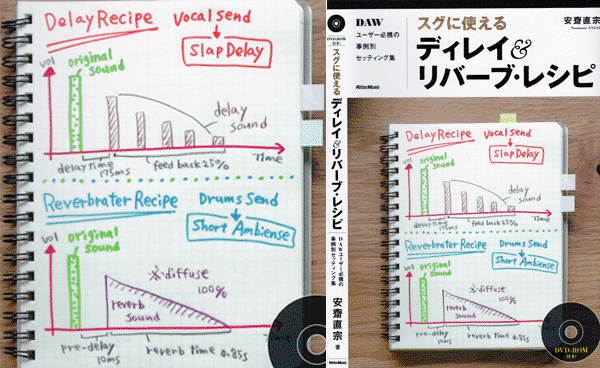 Delay Recipe
Vocal Send
Slap Delay
vol
original
sound
delay
sound
delay time
175ms
feed back 25%
TIme
Reverbrater Recipe
Drums Send
Short Ambiense
vol
original
sound
※diffuse
100%
reverb
sound
pre-delay
10ms
reverb time 0.85s
スグに使える
ディレイ&リバーブ・レシピ
DAWユーザー必携の
事例別セッティング集
安齋直宗 著
RittorMusic
DAW
ユーザー必携の
事例別
セッティング集
RittorMusic
安齋直宗
スグに使える
ディレイ&
リバーブ・レシピ
Delay Recipe
Vocal Send
Slap Delay
vol
original
sound
delay
sound
delay time
175ms
feed back 25%
TIme
Reverbrater Recipe
Drums Send
Short Ambiense
vol
original
sound
※diffuse
100%
reverb
sound
pre-delay
10ms
reverb time 0.85s
DVD-ROM
付き!